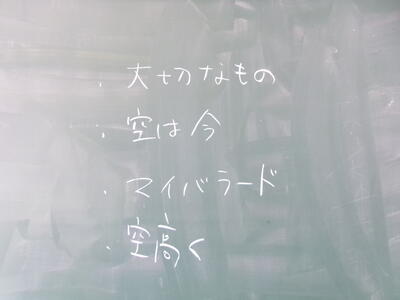 ・大切なもの
・空は今
・マイバラード
・空高く